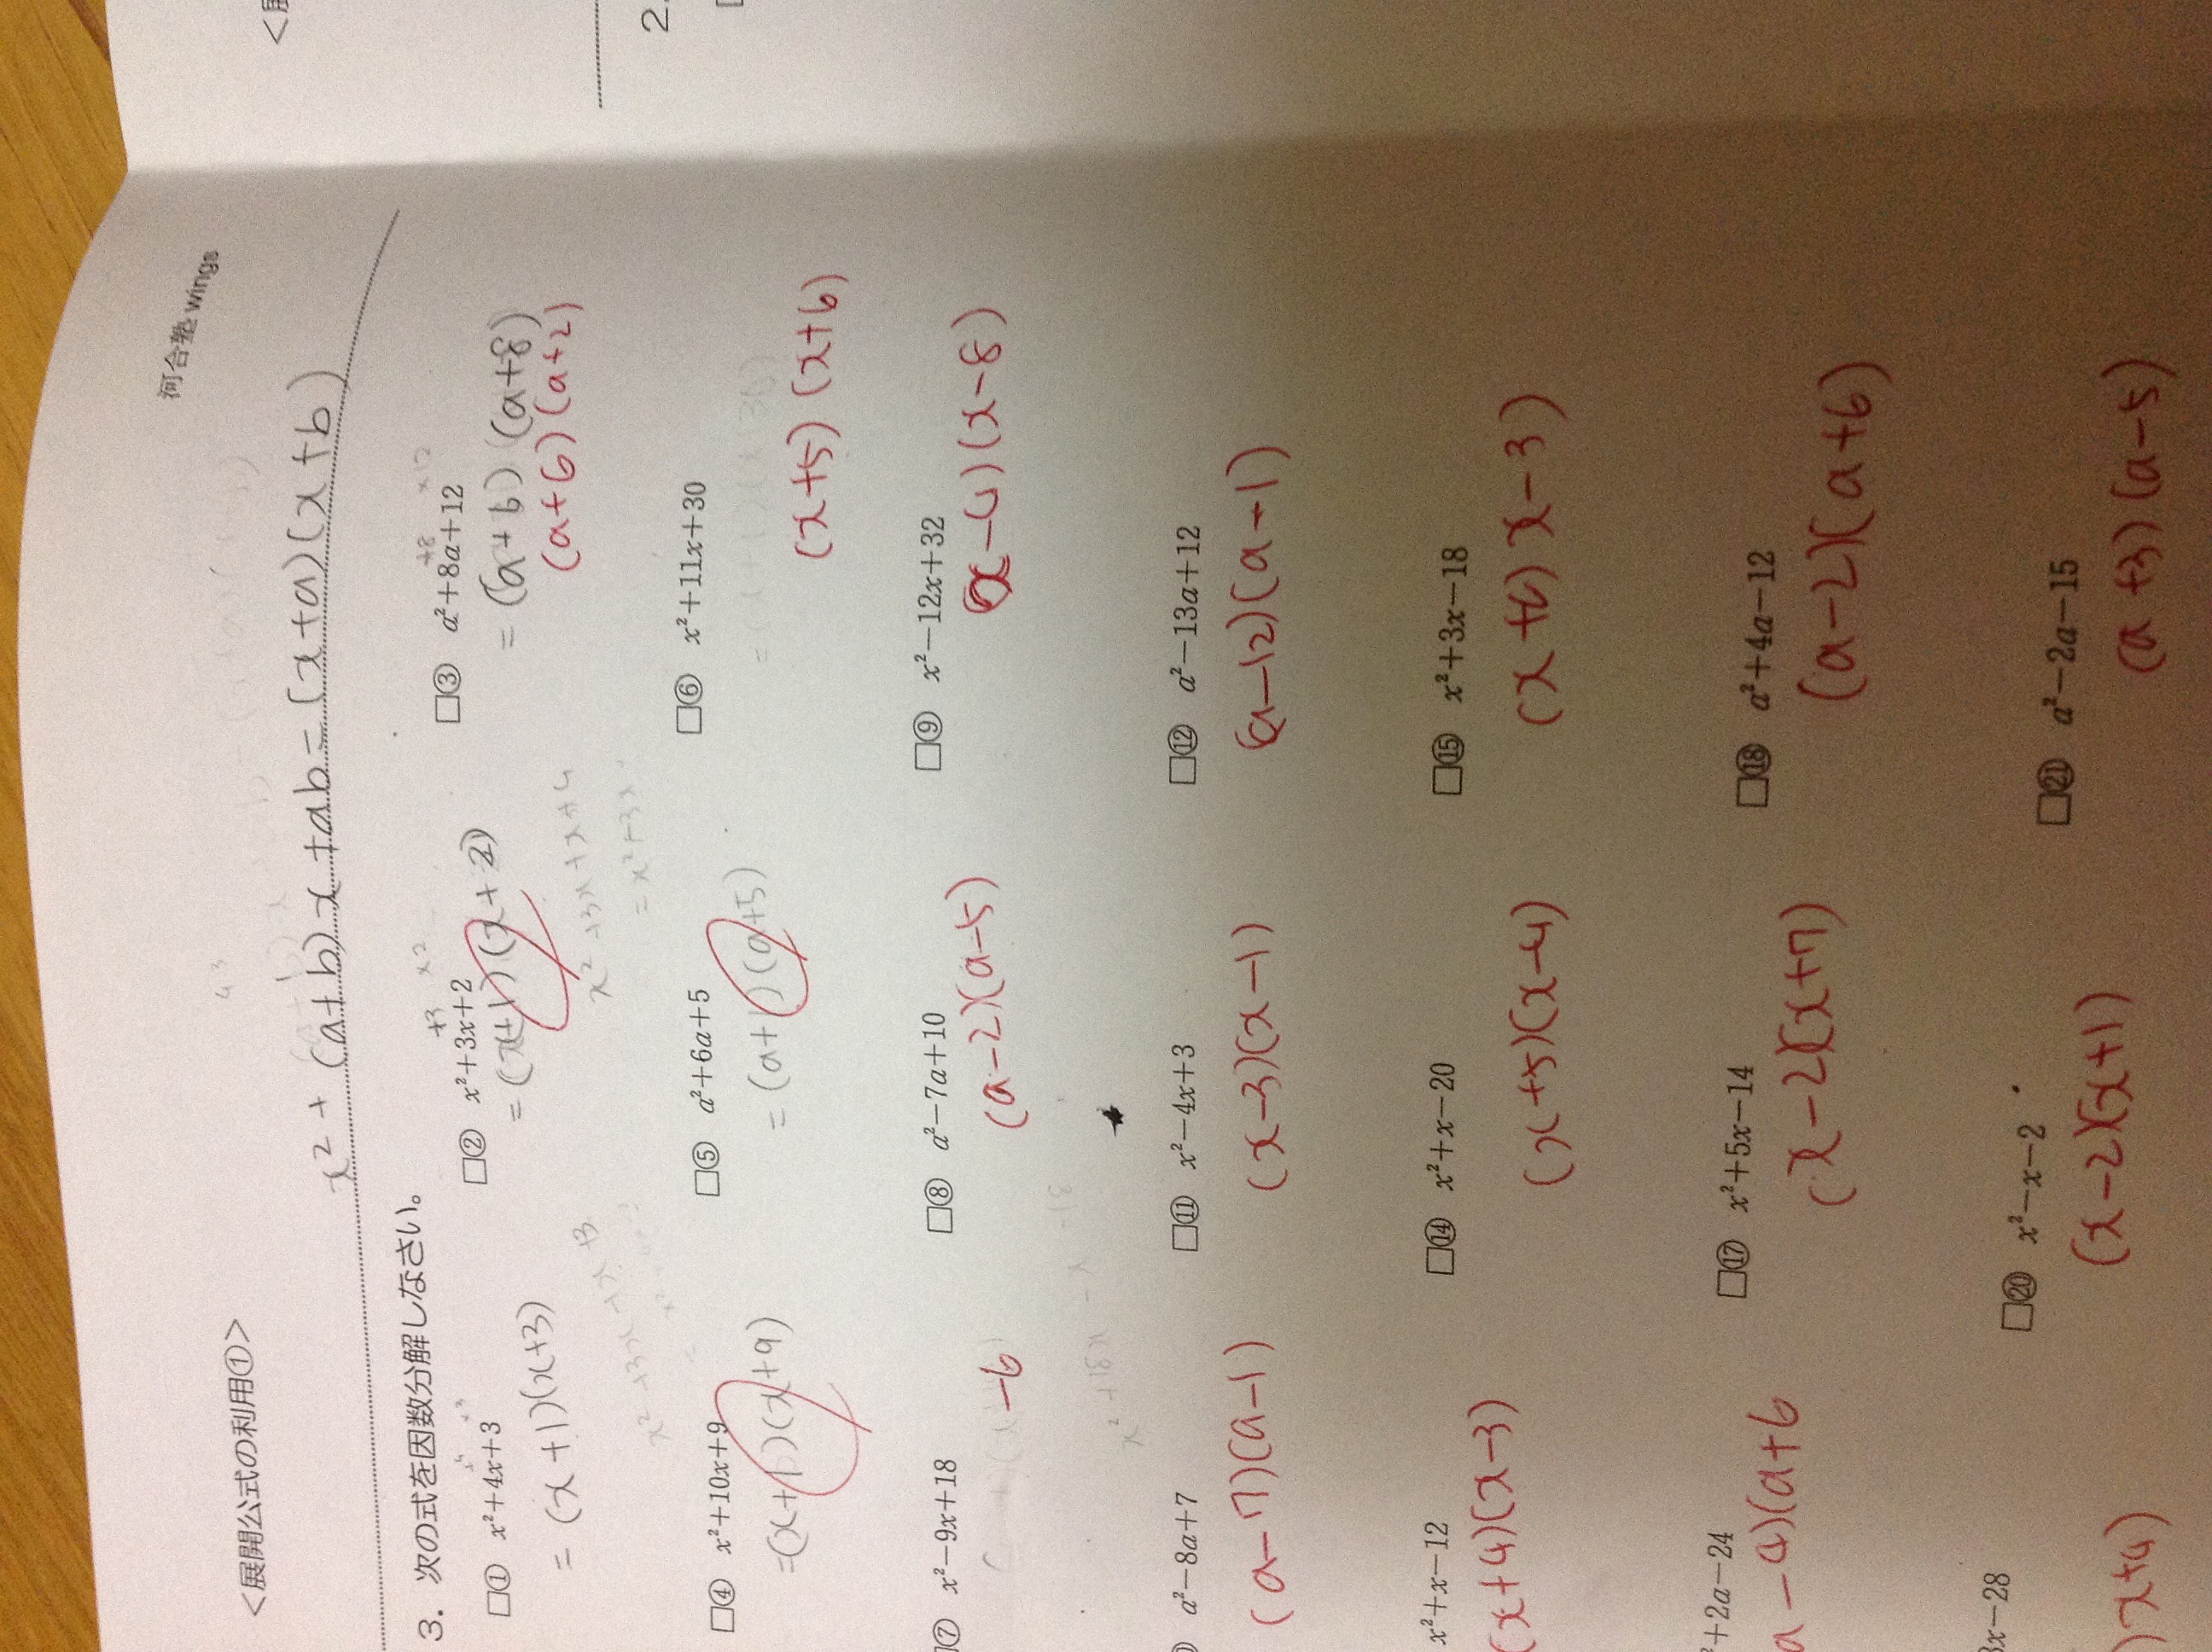 河合塾wings
<展開公式の利用①>
x²+(a+b)x+ab=(x+a)(x+b)
3. 次の式を因数分解しなさい。
□① x²+4x+3
=(x+1)(x+3)
□② x²+3x+2
+3 x2
=(x+1)(x+2)
x²+3x+x+4
=x²+3x
□③ a²+8a+12
+8 x12
=(a+6)(a+8)
(a+6)(a+2)
□④ x²+10x+9
=(x+1)(x+9)
□⑤ a²+6a+5
=(a+1)(a+5)
□⑥ x²+11x+30
(x+5)(x+6)
⑦ x²−9x+18
−6
□⑧ a²−7a+10
(a−2)(a−5)
□⑨ x²−12x+32
(x−4)(x−8)
a²−8a+7
(a−7)(a−1)
□⑪ x²−4x+3
(x−3)(x−1)
□⑫ a²−13a+12
(a−12)(a−1)
x²+x−12
(x+4)(x−3)
□⑭ x²+x−20
(x+5)(x−4)
□⑮ x²+3x−18
(x+6)x−3)
²+2a−24
a−4)(a+6
□⑰ x²+5x−14
(x−2)(x+7)
□⑱ a²+4a−12
(a−2)(a+6)
3x−28
)x+4)
□⑳ x²−x−2
(x−2)(x+1)
□㉑ a²−2a−15
(a+3)(a−5)
2.